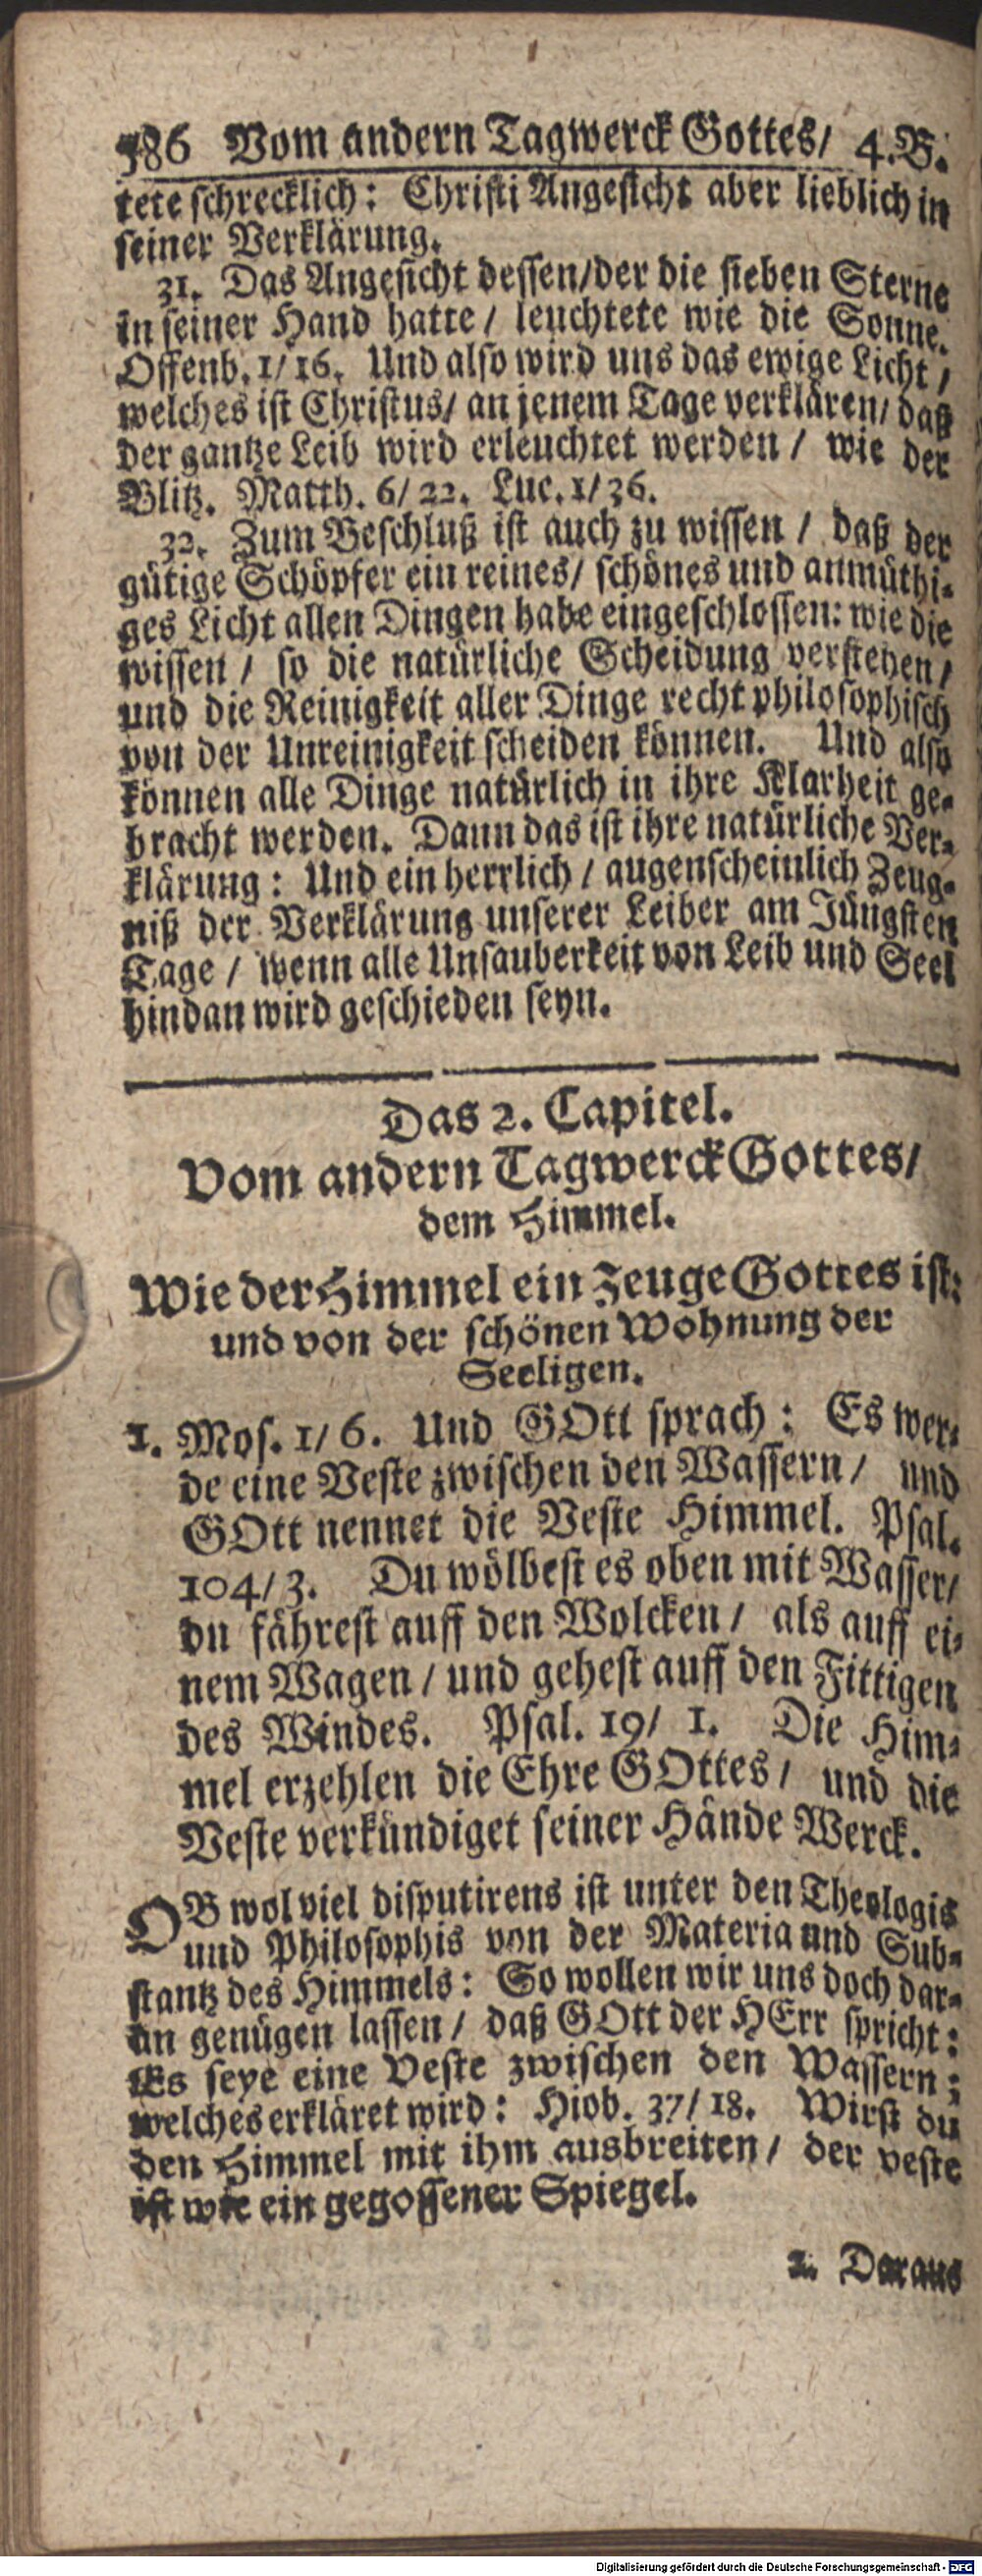 586 Vom andern Tagwerck Gottes/ 4. B.
tete schrecklich: Christi Angesicht aber lieblich in
seiner Verklärung.
31. Das Angesicht dessen/der die sieben Sterne
in seiner Hand hatte / leuchtete wie die Sonne.
Offenb. 1/16. Und also wird uns das ewige Licht /
welches ist Christus/ an jenem Tage verklären/ daß
der gantze Leib wird erleuchtet werden / wie der
Blitz. Matth. 6/22. Luc. 1/36.
32. Zum Beschluß ist auch zu wissen / daß der
gütige Schöpfer ein reines/ schönes und anmüthi-
ges Licht allen Dingen habe eingeschlossen: wie die
wissen / so die natürliche Scheidung verstehen /
und die Reinigkeit aller Dinge recht philosophisch
von der Unreinigkeit scheiden können. Und also
können alle Dinge natürlich in ihre Klarheit ge-
bracht werden. Dann das ist ihre natürliche Ver-
klärung: Und ein herrlich / augenscheinlich Zeug-
niß der Verklärung unserer Leiber am Jüngsten
Tage / wenn alle Unsauberkeit von Leib und Seel
hindan wird geschieden seyn.
Das 2. Capitel.
Vom andern Tagwerck Gottes/
dem Himmel.
Wie der Himmel ein Zeuge Gottes ist:
und von der schönen Wohnung der
Seeligen.
1. Mos. 1/6. Und GOtt sprach: Es wer-
de eine Veste zwischen den Wassern / und
GOtt nennet die Veste Himmel. Psal.
104/3. Du wölbest es oben mit Wasser/
du fährest auff den Wolcken / als auff ei-
nem Wagen / und gehest auff den Fittigen
des Windes. Psal. 19/ 1. Die Him-
mel erzehlen die Ehre GOttes / und die
Veste verkündiget seiner Hände Werck.
OB wol viel disputirens ist unter den Theologis
und Philosophis von der Materia und Sub-
stantz des Himmels: So wollen wir uns doch dar-
an genügen lassen / daß GOtt der HErr spricht:
Es seye eine Veste zwischen den Wassern;
welches erkläret wird: Hiob. 37/18. Wirst du
den Himmel mit ihm ausbreiten / der veste
ist wie ein gegossener Spiegel.
2. Daraus
Digitalisierung gefördert durch die Deutsche Forschungsgemeinschaft - DFG